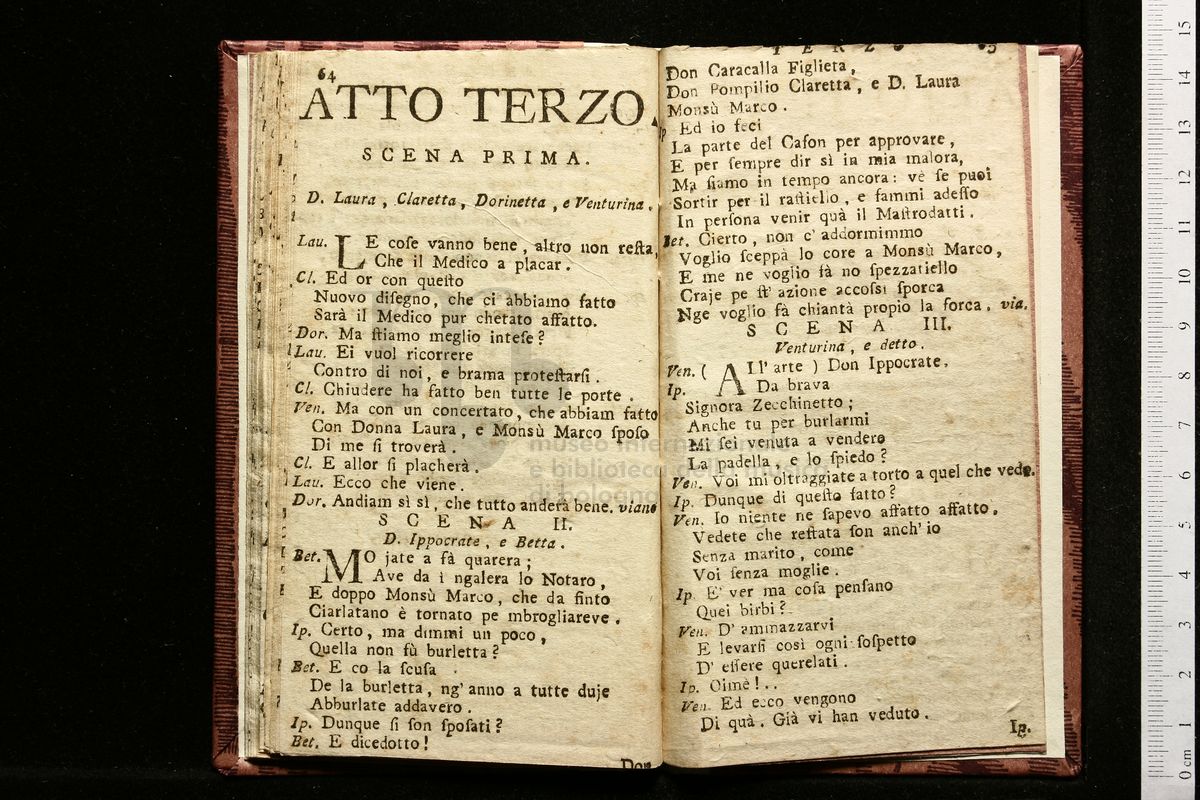 64
ATTO TERZO.
SCENA PRIMA.
D. Laura, Claretta, Dorinetta, e Venturina.
Lau. LE coſe vanno bene, altro non reſta,
Che il Medico a placar.
Cl. Ed or con queſto
Nuovo diſegno, che ci abbiamo fatto
Sarà il Medico pur chetato affatto.
Dor. Ma ſtiamo meglio inteſe?
Lau. Ei vuol ricorrere
Contro di noi, e brama proteſtarſi.
Cl. Chiudere ha fatto ben tutte le porte.
Ven. Ma con un concertato, che abbiam fatto
Con Donna Laura, e Monsù Marco ſpoſo
Di me ſi troverà.
Cl. E allor ſi placherà.
Lau. Ecco che viene.
Dor. Andiam sì sì, che tutto anderà bene. viano
SCENA II.
D. Ippocrate, e Betta.
Bet. MO jate a fà quarera;
Ave da ì ngalera lo Notaro,
E doppo Monsù Marco, che da finto
Ciarlatano è tornato pe mbrogliareve.
Ip. Certo, ma dimmi un poco,
Quella non fù burletta?
Bet. E co la ſcuſa
De la burletta, ng' anno a tutte duje
Abburlate addavero.
Ip. Dunque ſi ſon ſpoſati?
Bet. E dicedotto!
Don
TERZO 65
Don Caracalla Figlieta,
Don Pompilio Claretta, e D. Laura
Monsù Marco.
Ip Ed io feci
La parte del Cafon per approvare,
E per ſempre dir sì in mia malora,
Ma ſiamo in tempo ancora: vè ſe puoi
Sortir per il raſtiello, e fammi adeſſo
In perſona venir quà il Maſtrodatti.
Bet. Cierto, non c' addormimmo
Voglio ſceppà lo core a Monsù Marco,
E me ne voglio fà no ſpezzatiello
Craje pe ſt' azione accoſsì ſporca
Nge voglio fà chiantà propio la forca. via.
SCENA III.
Venturina, e detto.
Ven. ( ALl' arte ) Don Ippocrate,
Ip. Da brava
Signora Zecchinetto;
Anche tu per burlarmi
Mi ſei venuta a vendere
La padella, e lo ſpiedo?
Ven. Voi mi oltraggiate a torto a quel che vede.
Ip. Dunque di queſto fatto?
Ven. Io niente ne ſapevo affatto affatto.
Vedete che reſtata ſon anch' io
Senza marito, come
Voi ſenza moglie.
Ip. E' ver ma coſa penſano
Quei birbi?
Ven. D' ammazzarvi
E levarſi così ogni ſoſpetto
D' eſſere querelati.
Ip. Oimè!..
Ven. Ed ecco vengono
Di quà. Già vi han veduto.
Ip.
museo internazionale
e biblioteca della musica
di bologna
0 cm 1 2 3 4 5 6 7 8 9 10 11 12 13 14 15